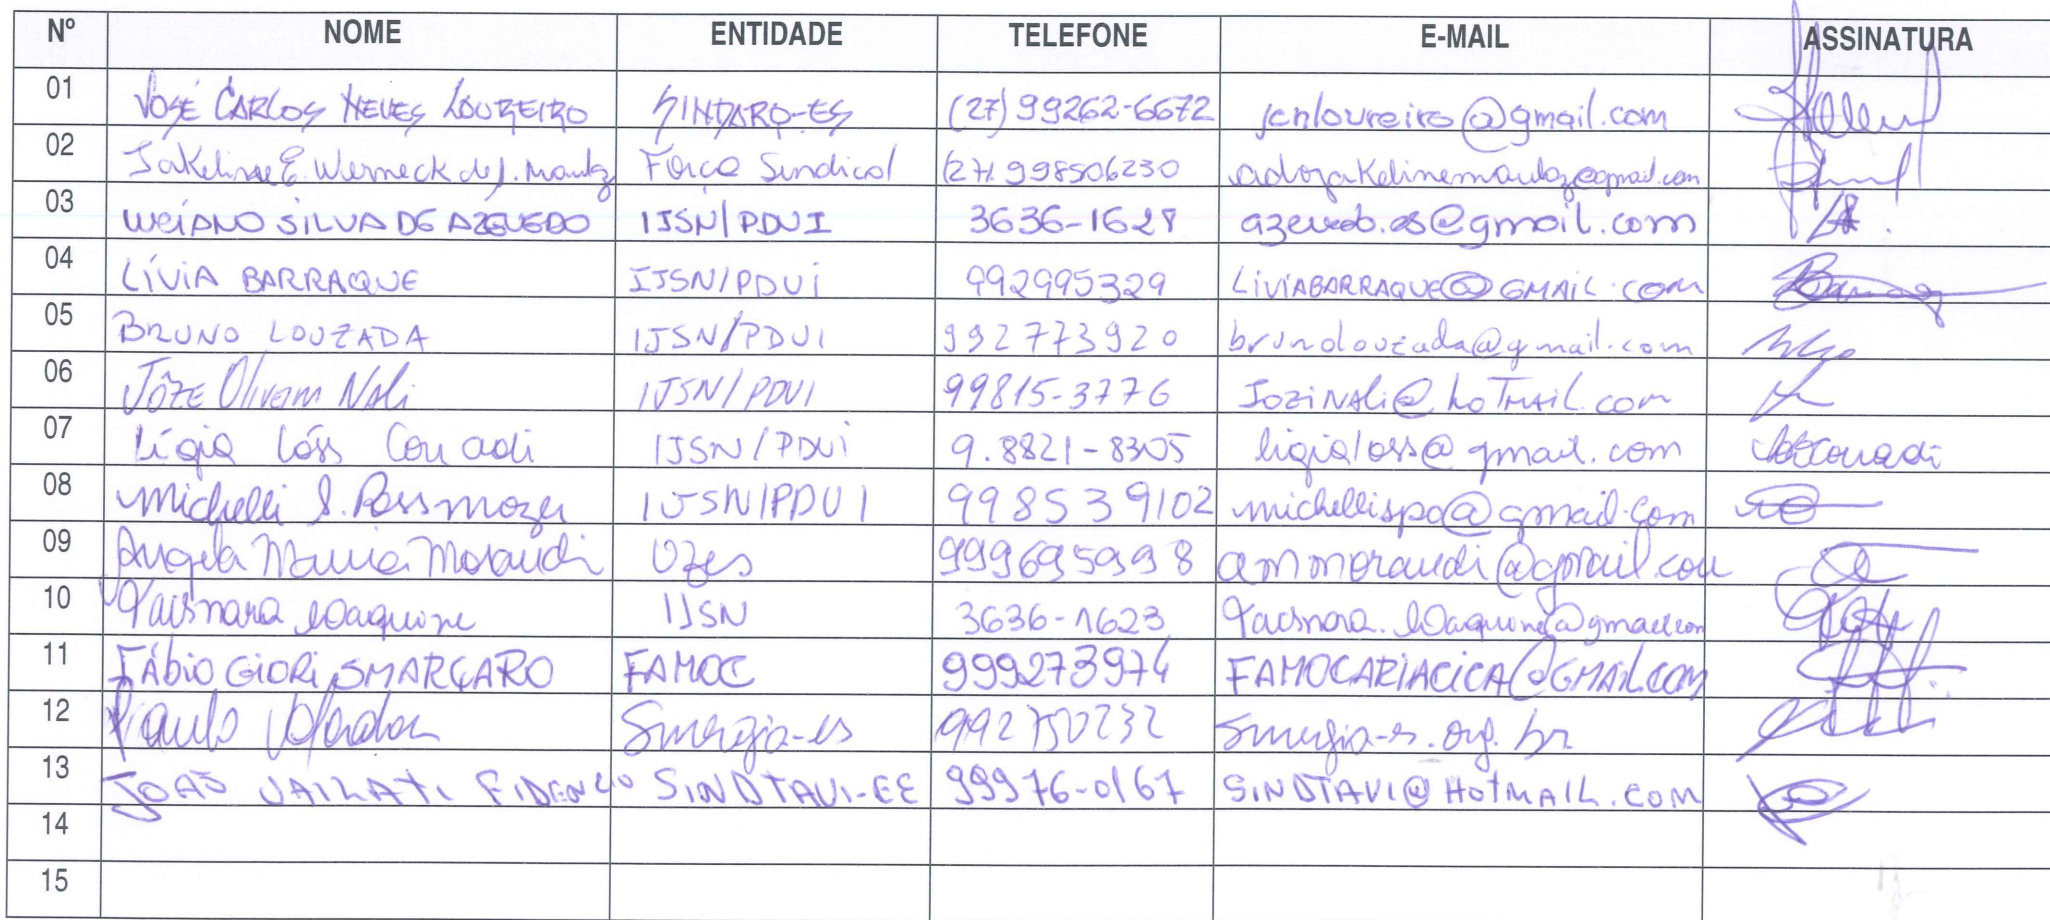 Nº NOME ENTIDADE TELEFONE E-MAIL ASSINATURA
01 JOSÉ CARLOS NEVES LOUREIRO SINDARQ-ES (27) 99262-6672 jcnloureiro@gmail.com
02 Jakeline E. Werneck de J. Força Sindical (27) 998506230
03 LUCIANO SILVA DE AZEVEDO IJSN/PDUI 3636-1628 azevedo.es@gmail.com
04 LÍVIA BARRAQUE IJSN/PDUI 992995329 LIVIABARRAQUE@GMAIL.COM
05 BRUNO LOUZADA IJSN/PDUI 992773920 brunolouzada@gmail.com
06 Jôze Nali IJSN/PDUI 99815-3776 JoziNAli@hoTmAil.com
07 Lígia Lóss Corradi IJSN/PDUI 9.8821-8305 ligialoss@gmail.com
08 Michelli S. Possmozer IJSN/PDUI 998539102 michellispo@gmail.com
09 Angela Maria Morandi Ufes 999695998 ammorandi@gmail.com
10 IJSN 3636-1623
11 FÁBIO GIORI SMARÇARO FAMOC 999273974 FAMOCARIACICA@GMAIL.COM
12 Paulo Sinergia-es sinergia-es.org.br
13 JOAO FIDENCIO SINDTAVI-ES 99976-0167 SINDTAVI@HOTMAIL.COM
14
15